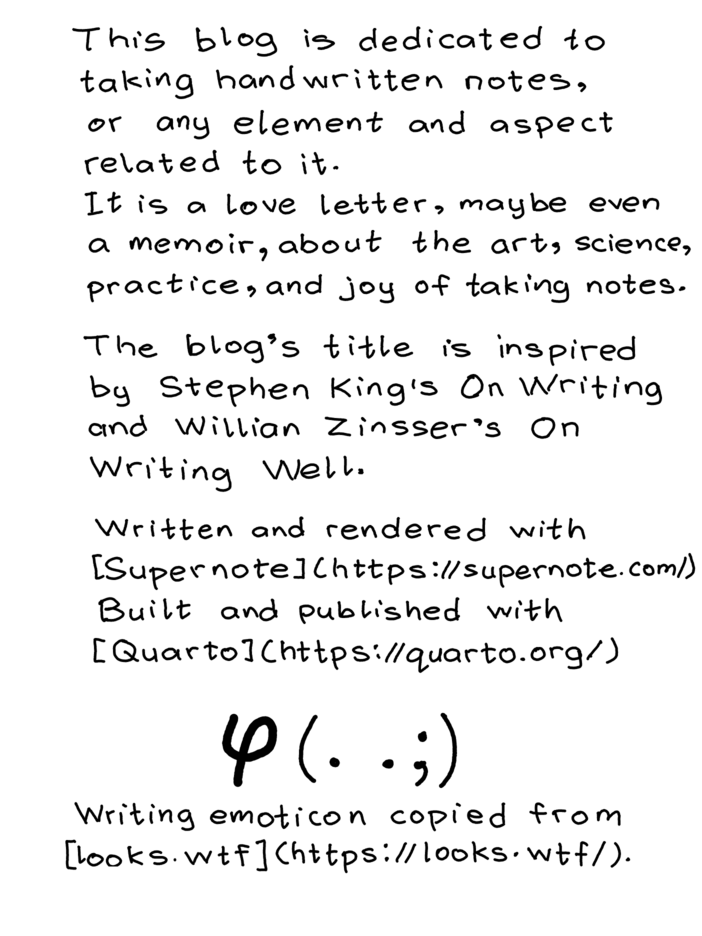 This blog is dedicated to
taking handwritten notes,
or any element and aspect
related to it.
It is a love letter, maybe even
a memoir, about the art, science,
practice, and joy of taking notes.
The blog's title is inspired
by Stephen King's On Writing
and Willian Zinsser's On
Writing Well.
Written and rendered with
[Supernote](https://supernote.com/)
Built and published with
[Quarto](https://quarto.org/)
φ(. .;)
Writing emoticon copied from
[looks.wtf](https://looks.wtf/).